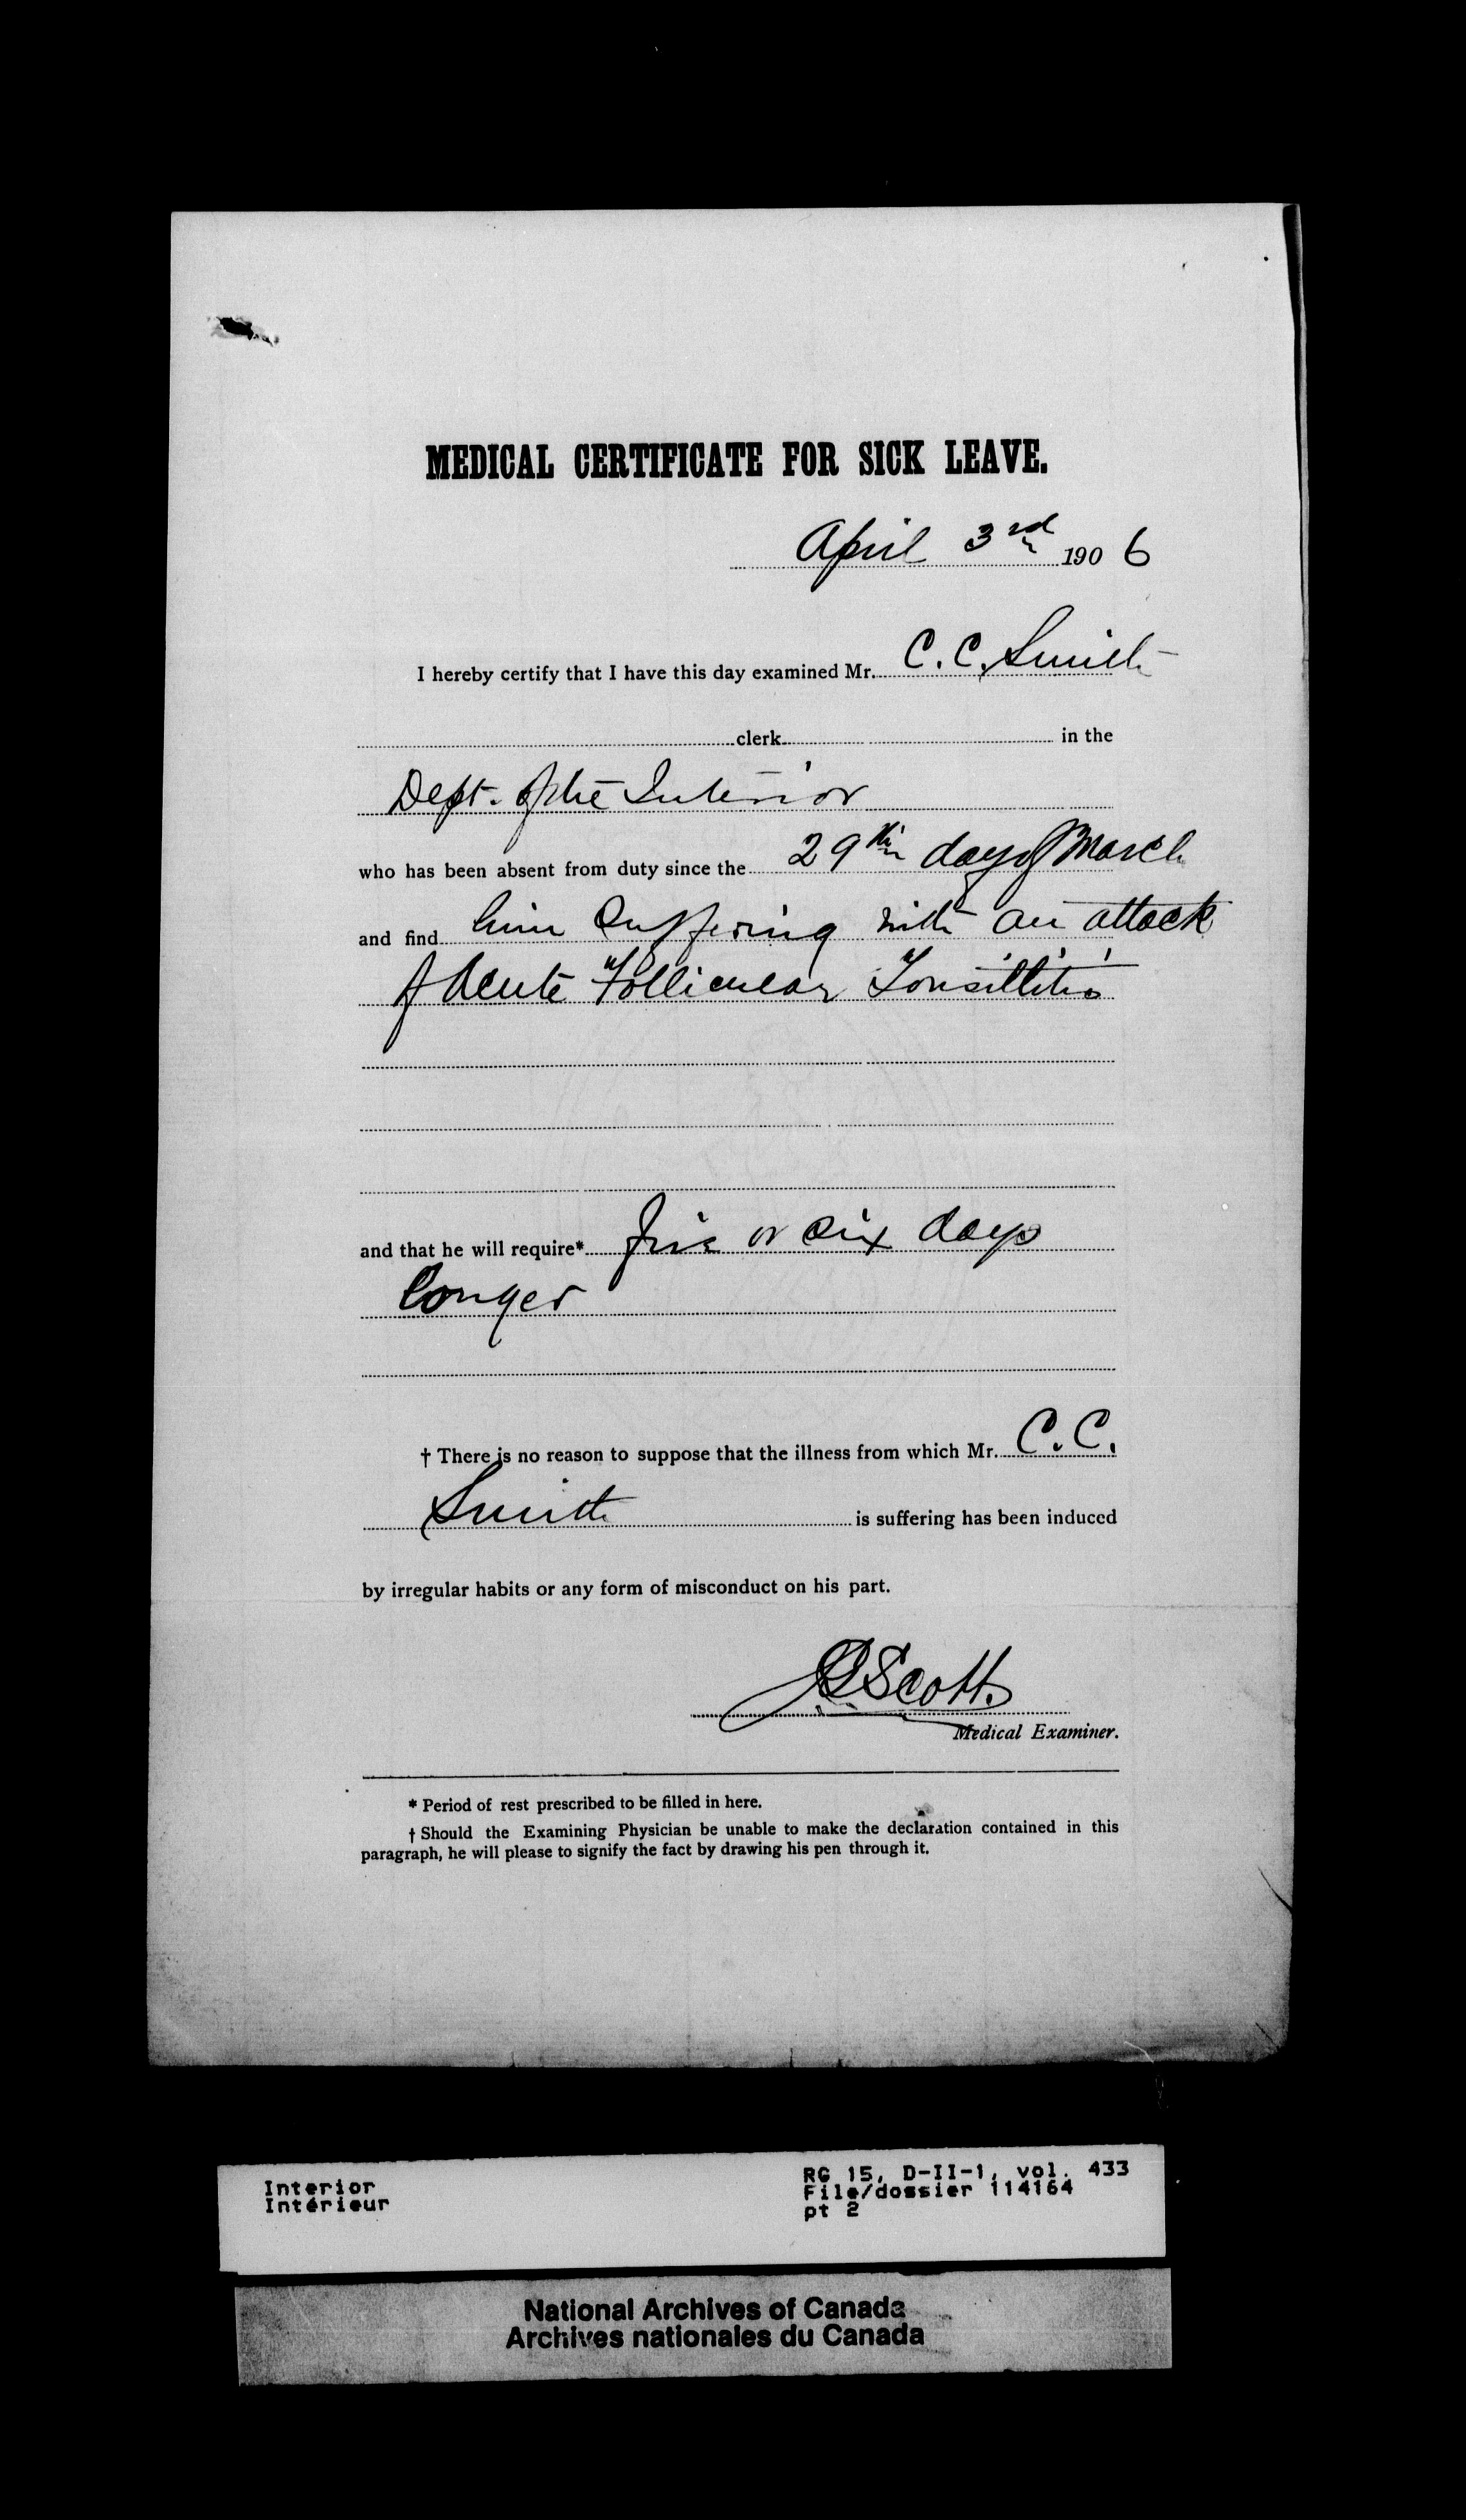 MEDICAL CERTIFICATE FOR SICK LEAVE.
April 3rd 1906
I hereby certify that I have this day examined Mr. C. C. Smith
clerk in the
Dept. of the Interior
who has been absent from duty since the 29th day of March
and find him suffering with an attack
of Acute Follicular Tonsillitis
and that he will require* five or six days
longer
† There is no reason to suppose that the illness from which Mr. C. C.
Smith is suffering has been induced
by irregular habits or any form of misconduct on his part.
Scott
Medical Examiner.
* Period of rest prescribed to be filled in here.
† Should the Examining Physician be unable to make the declaration contained in this
paragraph, he will please to signify the fact by drawing his pen through it.
Interior
Intérieur
RG 15, D-II-1, vol. 433
File/dossier 114164
pt 2
National Archives of Canada
Archives nationales du Canada